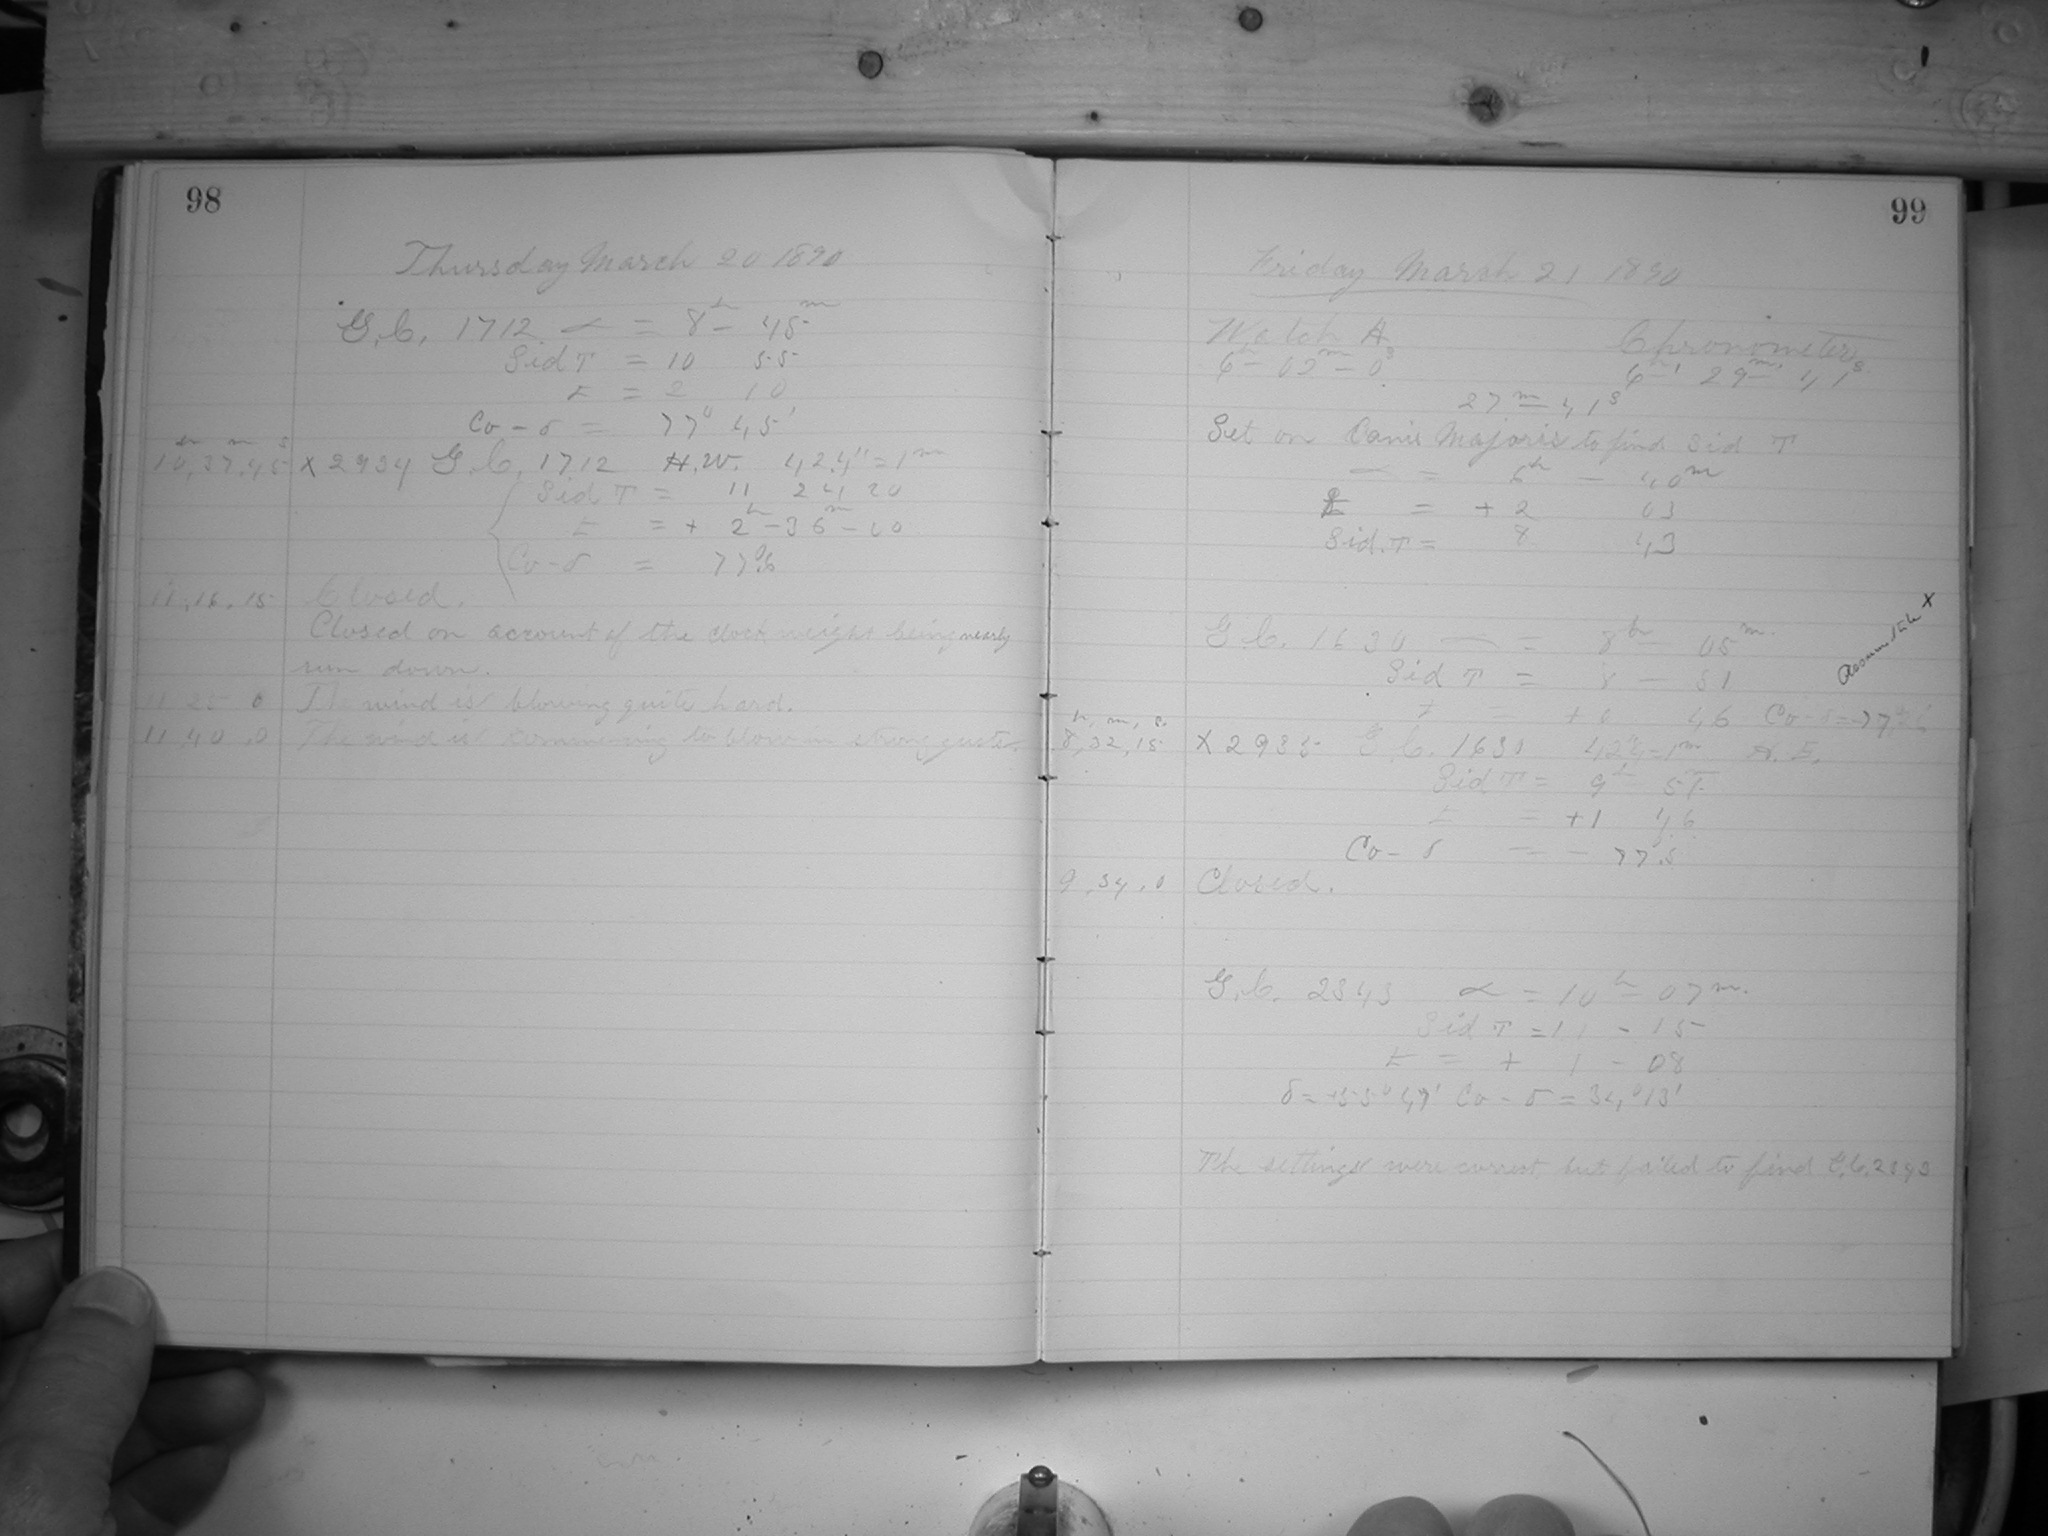 98
Thursday March 20 1890
G.C. 1712 α = 8h – 45m
Sid T = 10 55
t = 2 10
Co-δ = 77° 45'
h m s
10,37,45 X 2934 G.C. 1712 H.W. 42.4" = 1m
Sid T = 11 24 20
t = + 2h – 36m – 10
Co-δ = 77°.6
11,16,15 Closed.
Closed on account of the clock weight being nearly
run down.
11 25 0 The wind is blowing quite hard.
11,40,0 The wind is commencing to blow in strong gusts.
99
Friday March 21 1890
Watch A Chronometer
6h – 02m – 0s 6h 29m 41s
27m – 41s
Set on Canis Majoris to find Sid T
α = 6h – 40m
t = + 2 03
Sid. T = 8 43
G.C. 1630 α = 8h – 05m
Sid T = 8 – 51
t = + 0 46 Co-δ =
h, m, s.
8,32,15 X 2935 G.C. 1630 42.4 = 1m A. E.
Sid T = 9h 51
t = +1 46
Co-δ = – 77.5
9,34,0 Closed.
G.C. 2343 α = 10h – 07m.
Sid T = 11 – 15
t = + 1 – 08
δ = +55° 47' Co-δ = 34° 13'
The settings were correct but failed to find G.C. 2343